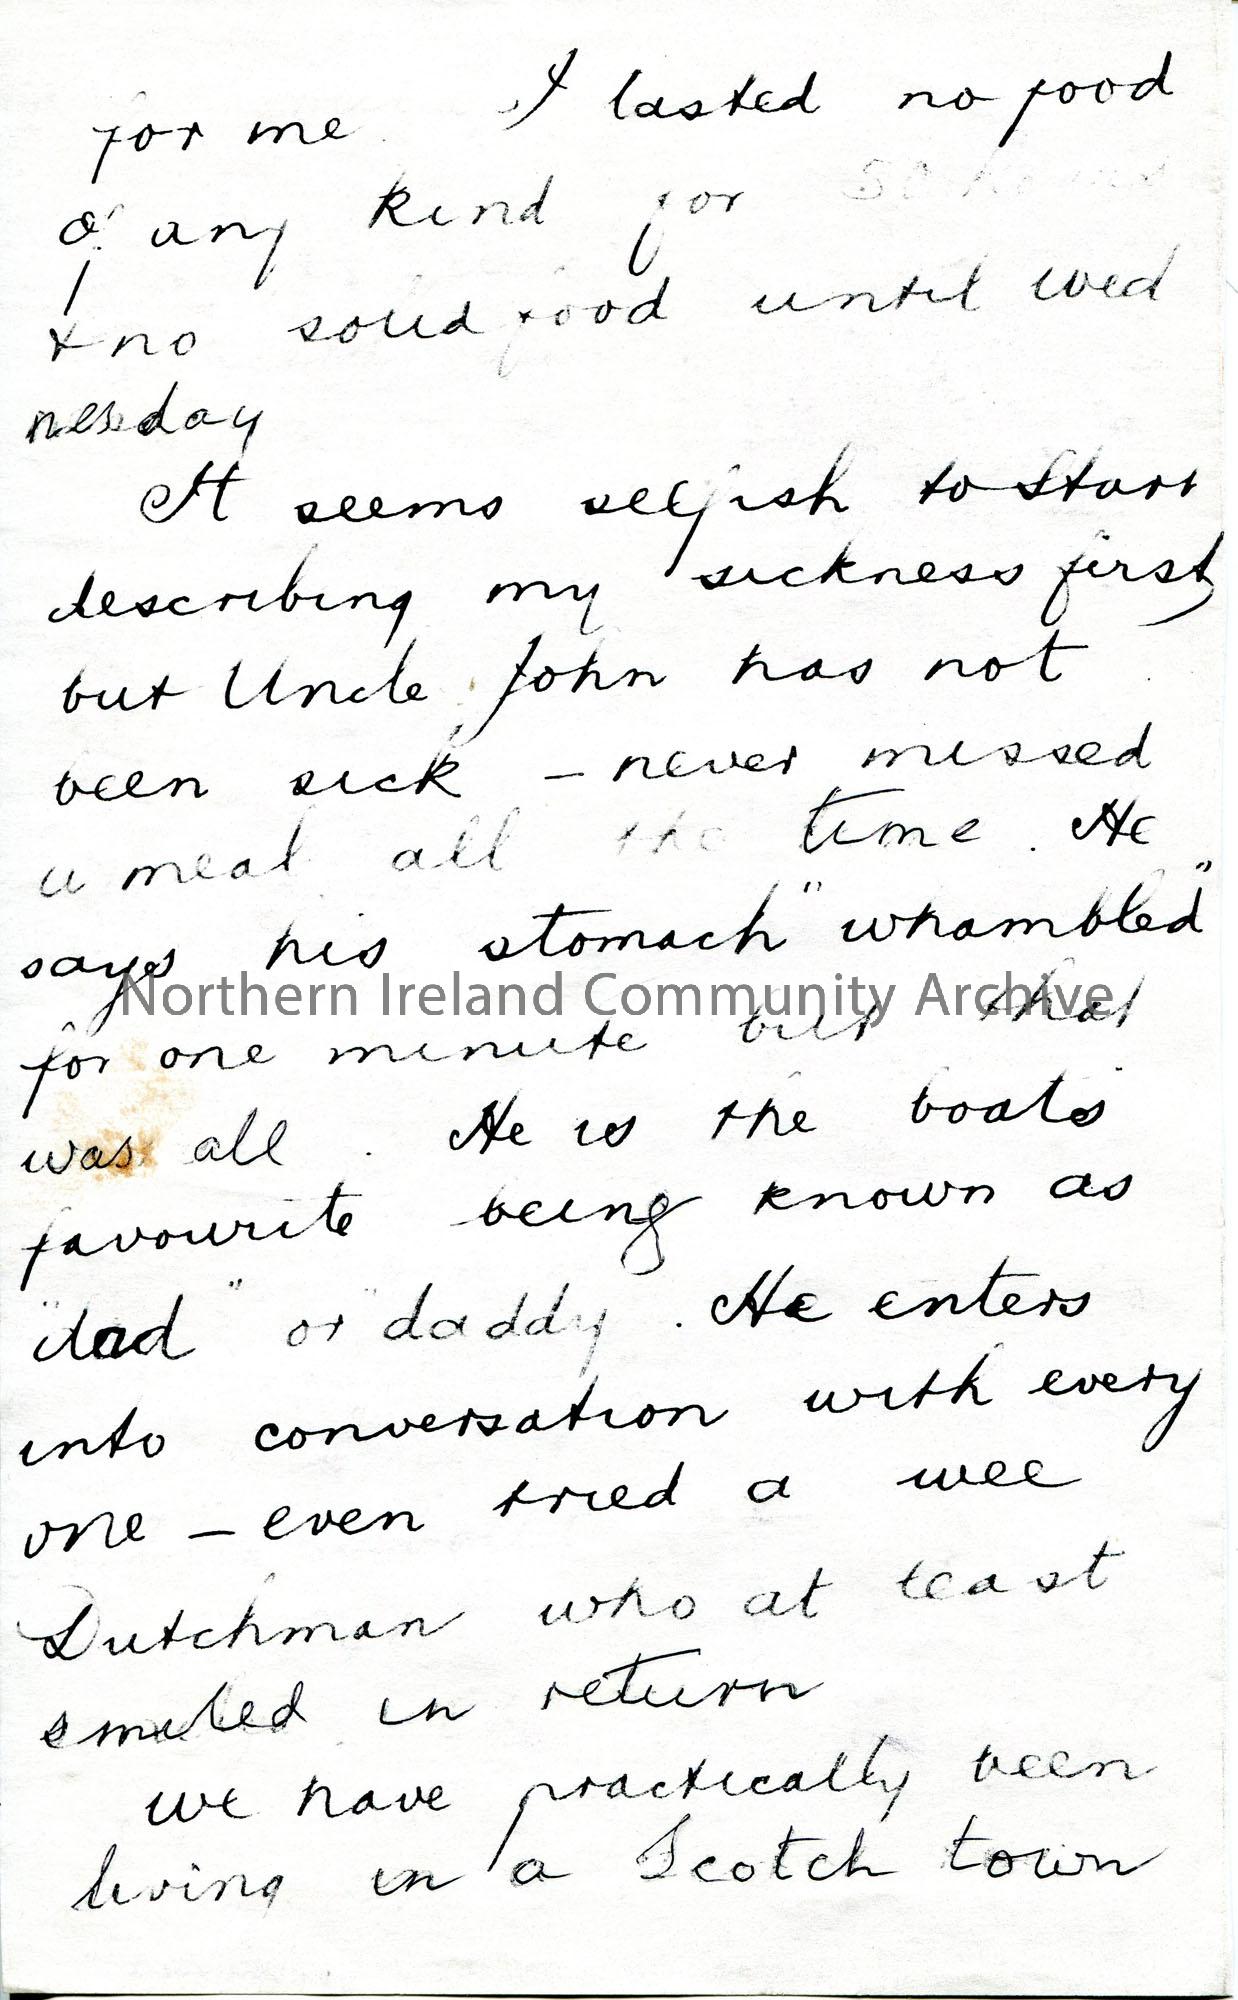 for me. I tasted no food
of any kind for 50 hours
& no solid food until wed
nesday
It seems selfish to start
describing my sickness first
but Uncle John has not
been sick – never missed
a meal all the time. He
says his stomach "whambled"
Northern Ireland Community Archive
for one minute but that
was all. He is the boat's
favourite being known as
"dad" or "daddy. He enters
into conversation with every
one – even tried a wee
Dutchman who at least
smiled in return
we have practically been
living in a Scotch town